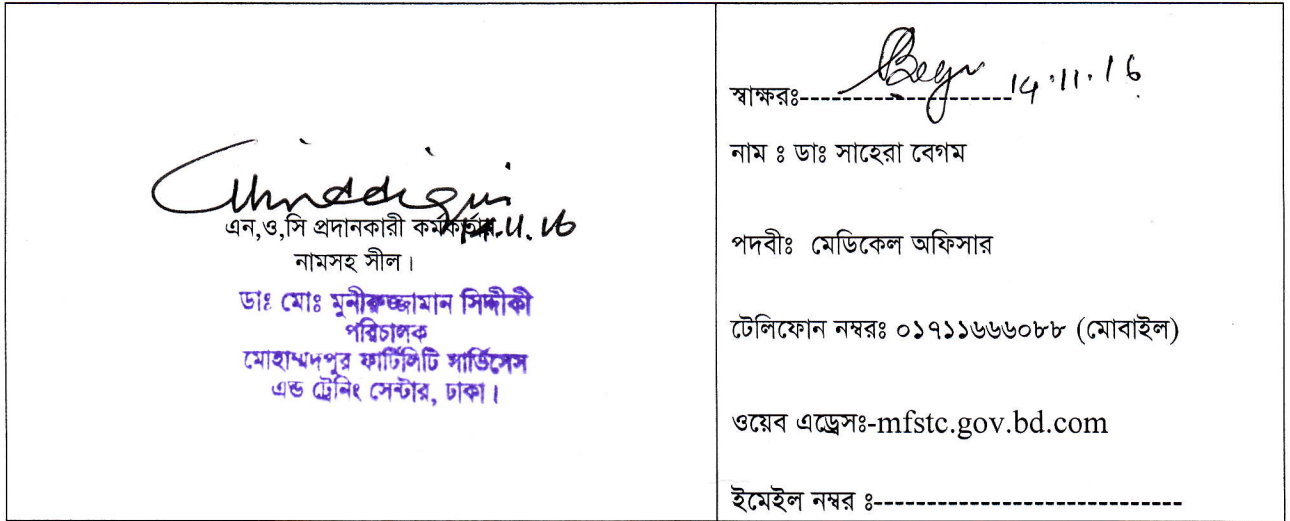 এন,ও,সি প্রদানকারী কর্মকর্তার
14.11.16
নামসহ সীল।
ডাঃ মোঃ মুনীরুজ্জামান সিদ্দীকী
পরিচালক
মোহাম্মদপুর ফার্টিলিটি সার্ভিসেস
এন্ড ট্রেনিং সেন্টার, ঢাকা।
স্বাক্ষরঃ-------------------- 14.11.16
নাম ঃ ডাঃ সাহেরা বেগম
পদবীঃ মেডিকেল অফিসার
টেলিফোন নম্বরঃ ০১৭১১৬৬৬০৮৮ (মোবাইল)
ওয়েব এড্রেসঃ-mfstc.gov.bd.com
ইমেইল নম্বর ঃ-----------------------------